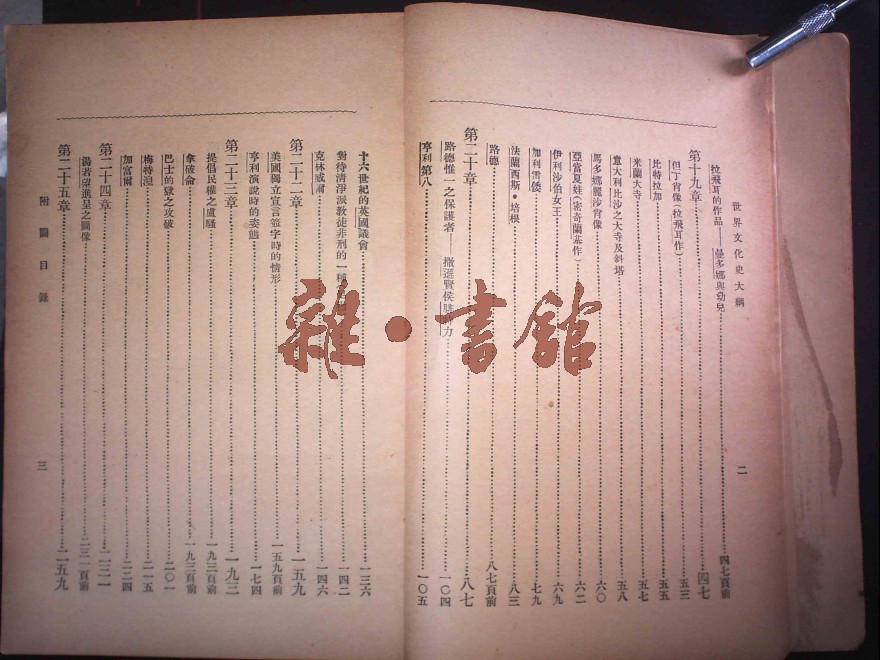 世界文化史大綱
二
拉飛耳的作品——曼多娜與幼兒 四七頁前
第十九章 四七
但丁肖像(拉飛耳作) 五三
比特拉加 五五
米蘭大寺 五七
意大利比沙之大寺及斜塔 五八
馬多娜麗沙肖像 六〇
亞當夏娃(密奇蘭基作) 六二
伊利沙伯女王 六九
加利雷倭 七九
法蘭西斯・培根 八三
路德 八七頁前
第二十章 八七
路德惟一之保護者——撒遜賢侯 力 一〇四
亨利第八 一〇五
十六世紀的英國議會 一三六
對待清淨派教徒非刑的一種 一四二
克林威爾 一四六
第二十二章 一五九
美國獨立宣言簽字時的情形 一五九頁前
亨利演說時的姿態 一七四
第二十三章 一九三
提倡民權之盧騷 一九三頁前
拿破侖 一九三頁前
巴士的獄之攻破 二〇一
梅特涅 二一五
加富爾 二二四
第二十四章 二三一
湯若望進呈之圖像 二三一頁前
第二十五章 二五九
附圖目錄
三
雜・書館